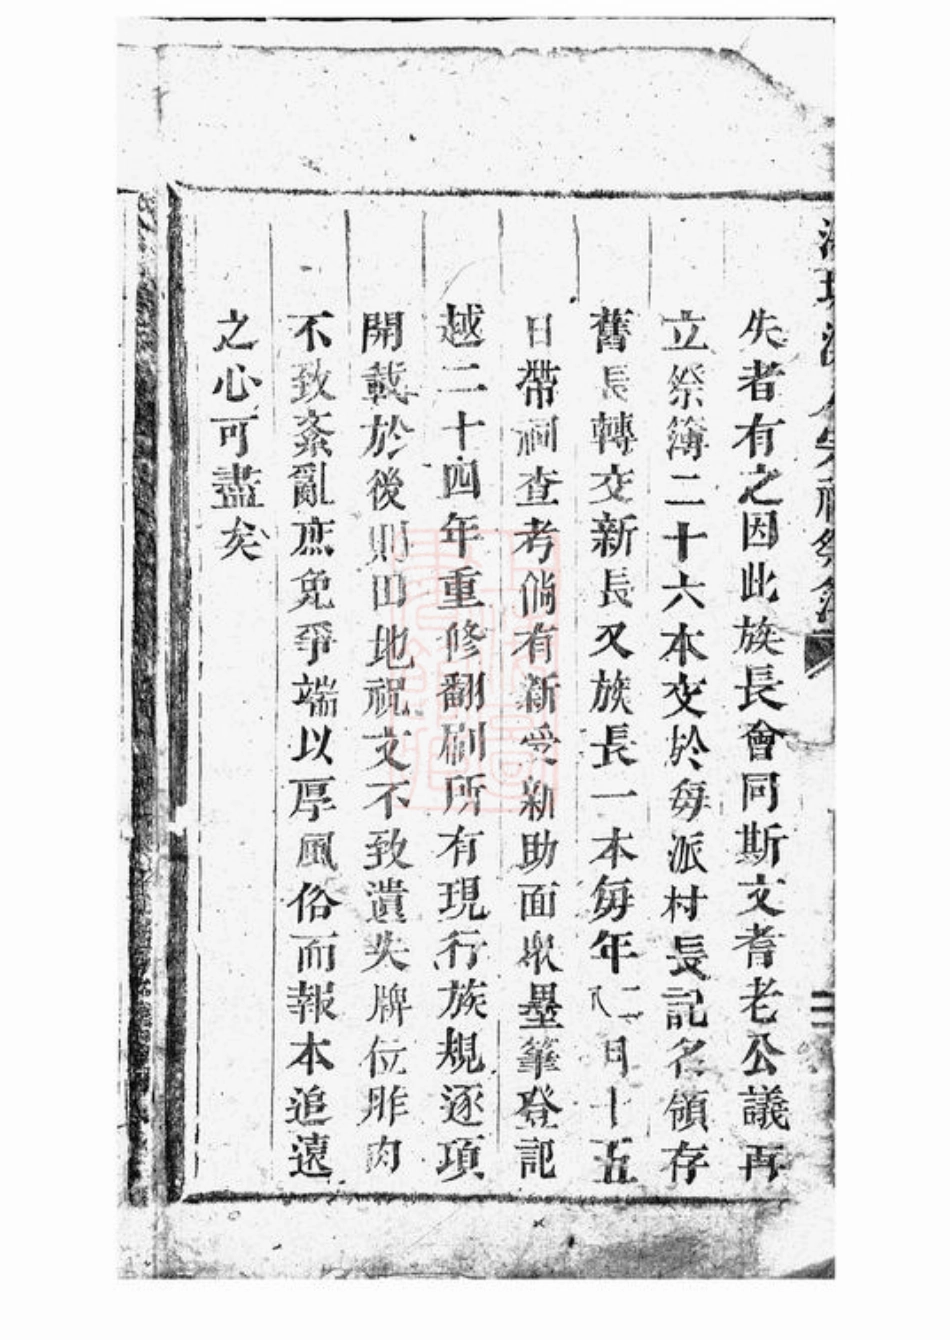 失者有之因此族長會同斯文耆老公議再
立祭簿二十六本交於每派村長記名領存
舊長轉交新長又族長一本每年仁月十五
日帶祠查考倘有新受新助面衆墨筆登記
越二十四年重修翻刷所有現行族規逐項
開載於後則田地祝文不致遺失牌位胙肉
不致紊亂庶免爭端以厚風俗而報本追遠
之心可盡矣